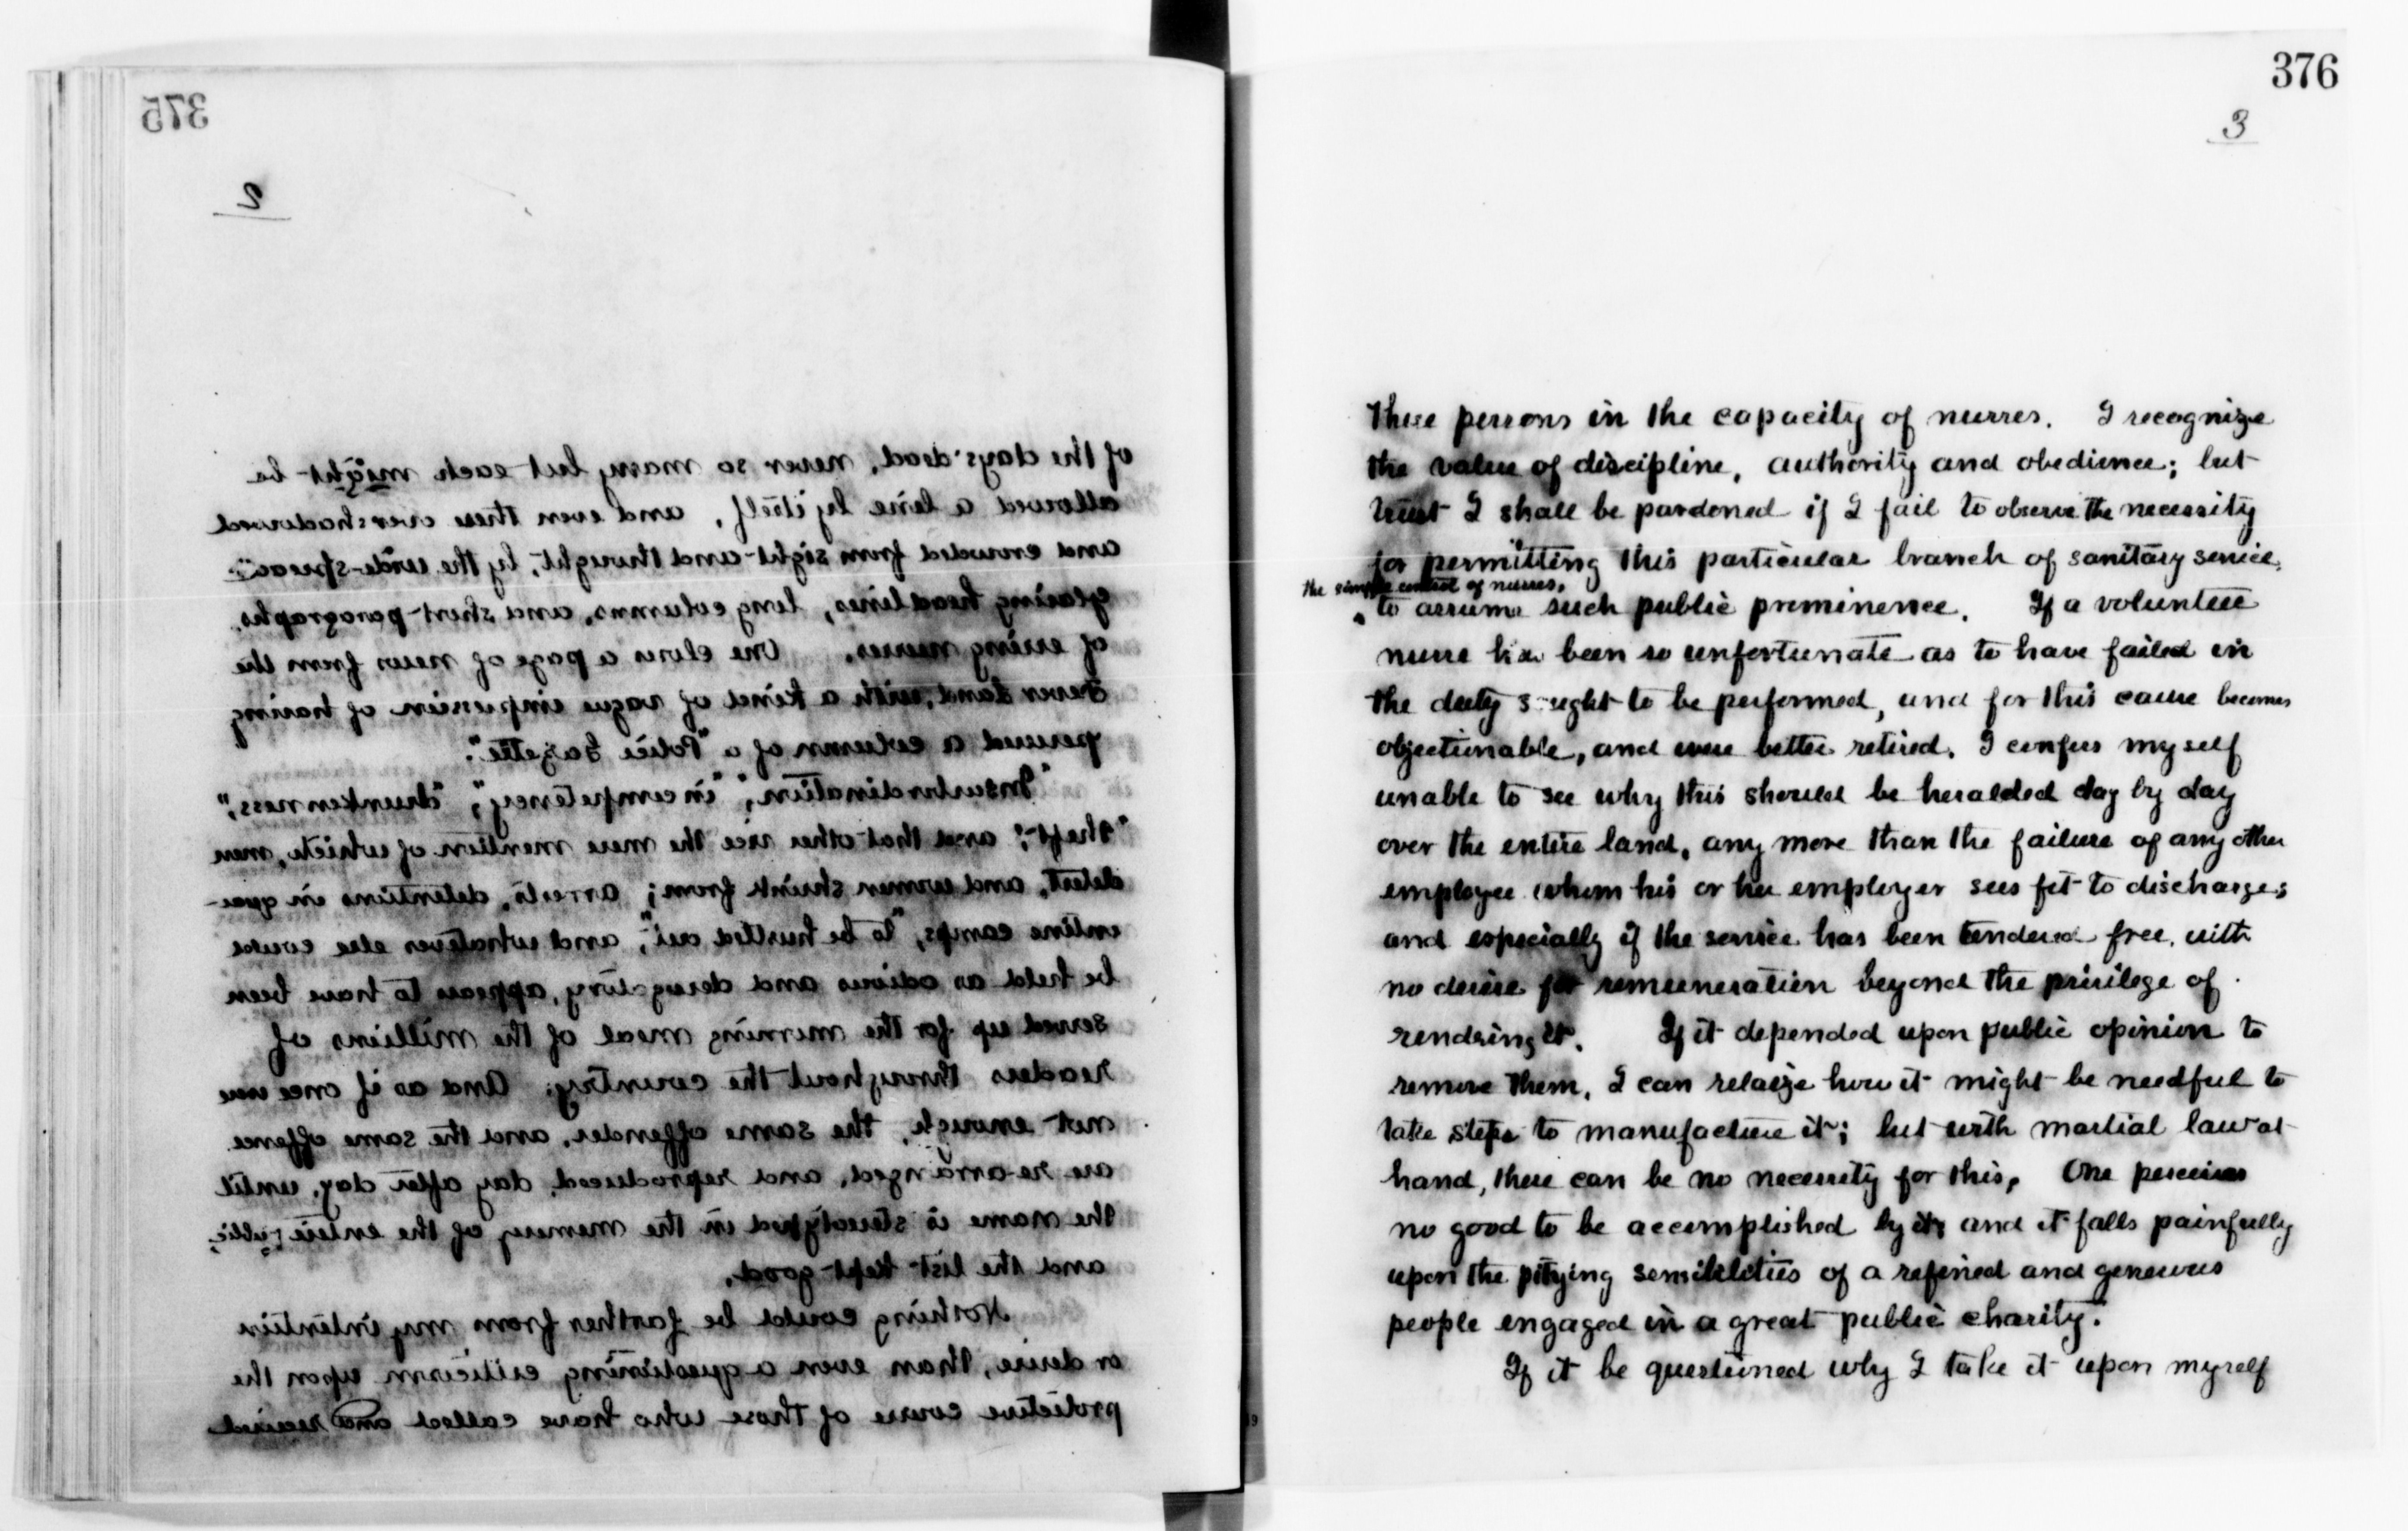 375
2
of the days dead, never so many, but each might be
allowed a line by itself, and even these overshadowed
and crowded from sight and thought, by the wide-spread
glaring headlines, long columns, and short paragraphs
of erring nurses. One closes a page of news from the
fever land, with a kind of vague impression of having
perused a column of a "Police Gazette".
"Insubordination", "incompetency", "drunkenness",
"theft", and that other vice the mere mention of which, men
detest, and women shrink from; arrests, detentions in quar-
entine camps, "to be hustled out", and whatever else could
be held as odious and derogatory, appears to have been
served up for the morning meal of the millions of
readers throughout the country. And as if once were
not enough, the same offender, and the same offence
are re-arranged, and reproduced, day after day, until
the name is stereotyped in the memory of the entire public,
and the list kept good.
Nothing could be farther from my intention
or desire, than even a questioning criticism upon the
protective course of those who have called and received
376
3
these persons in the capacity of nurses. I recognize
the value of discipline, authority and obedience; but
trust I shall be pardoned if I fail to observe the necessity
for permitting this particular branch of sanitary service,
the simple control of nurses,
to assume such public prominence. If a volunteer
nurse has been so unfortunate as to have failed in
the duty sought to be performed, and for this cause becomes
objectionable, and were better retired, I confess myself
unable to see why this should be heralded day by day
over the entire land, any more than the failure of any other
employee whom his or her employer sees fit to discharge;
and especially if the service has been tendered free, with
no desire for remuneration beyond the privilege of
rendring it. If it depended upon public opinion to
remove them, I can relaize how it might be needful to
take steps to manufacture it; but with martial law at
hand, there can be no necessity for this. One perceives
no good to be accomplished by it; and it falls painfully
upon the pitying sensibilities of a refined and generous
people engaged in a great public charity.
If it be questioned why I take it upon myself